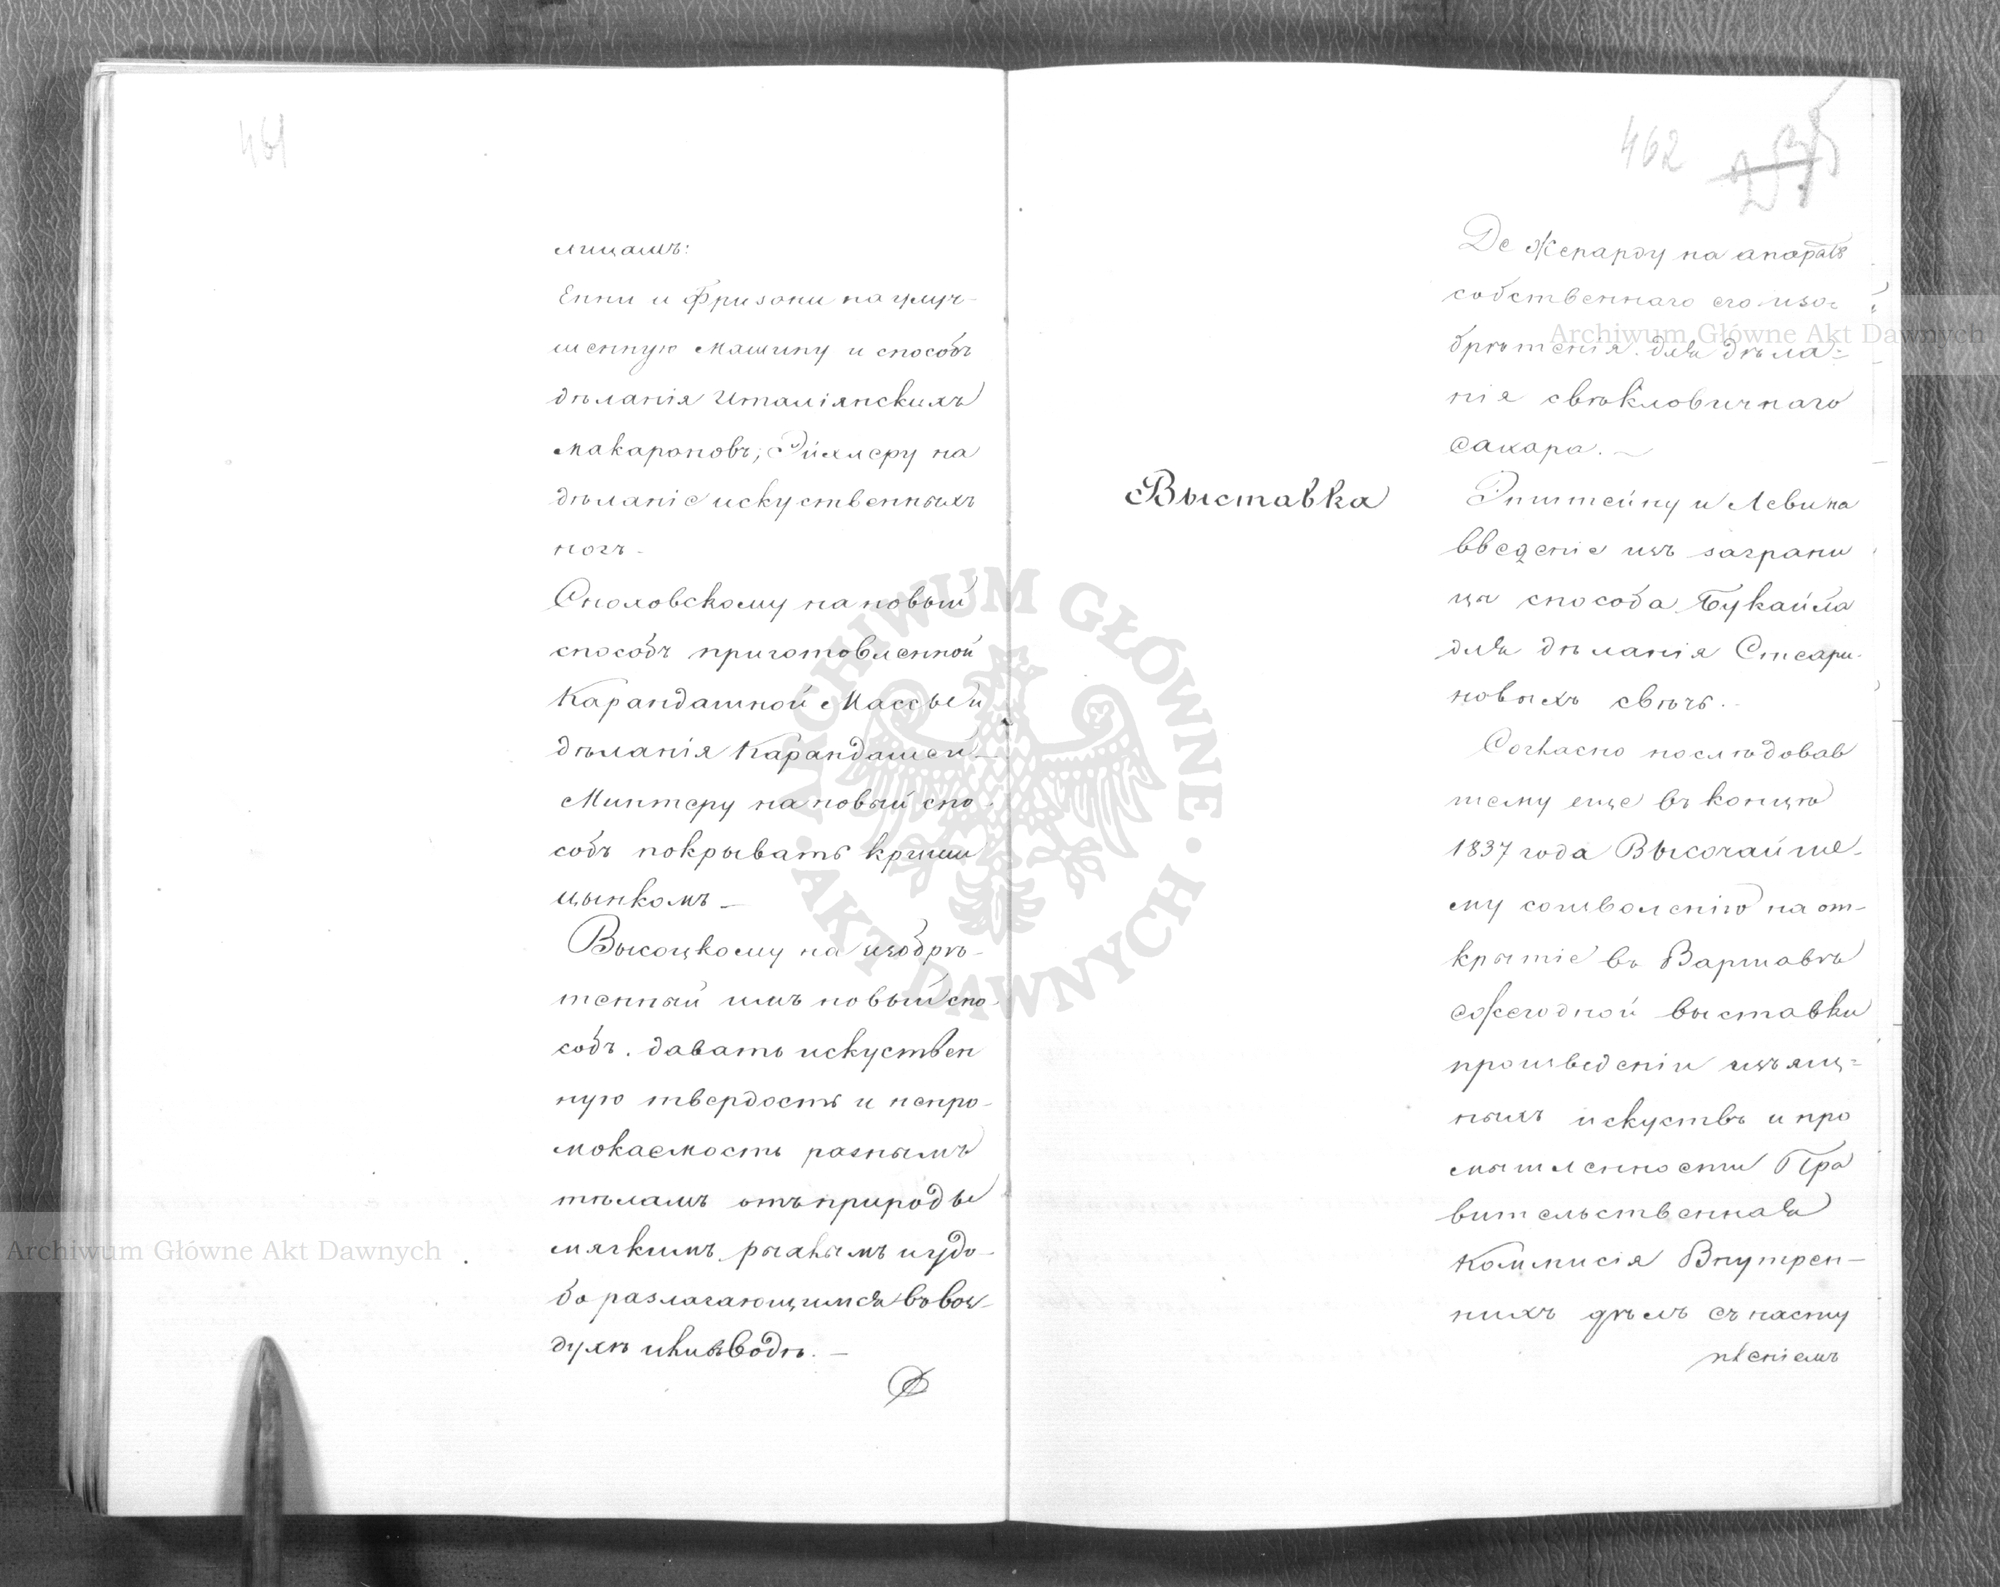 461
лицамъ:
Енни и Фризони на улуч-
шенную машину и способъ
дѣланія Италіянскихъ
макароновъ; Эйхлеру на
дѣланіе искуственныхъ
ногъ.
Споховскому на новый
способъ приготовленной
Карандашной Массы и
дѣланія Карандашей —
Минтеру на новый спо-
собъ покрывать крыши
цынкомъ —
Высоцкому на изобрѣ-
тенный имъ новый спо-
собъ давать искуствен
ную твердость и непро-
мокаемость разнымъ
тѣламъ отъ природы
мягкимъ, рыхлымъ и удо-
бо разлагающимся въ воз-
духѣ или въ водѣ. —
462
Де Жерарду на апоратъ
собственнаго его изо-
брѣтенія для дѣла-
нія свѣкловичнаго
сахара. —
Выставка
Эпштейну и Левина
введеніе изъ заграни
цы способа Букайла
для дѣланія Стеари-
новыхъ свѣчь. -
Согласно послѣдовав
шему еще въ концѣ
1837 года Высочайше-
му соизволенію на от-
крытіе въ Варшавѣ
ежегодной выставки
произведеніи изъящ-
ныхъ искуствъ и про
мышленности Пра
вительственная
Коммисія Внутрен-
нихъ дѣлъ съ насту
пленіемъ
ARCHIWUM GŁÓWNE · AKT DAWNYCH ·
Archiwum Główne Akt Dawnych
Archiwum Główne Akt Dawnych